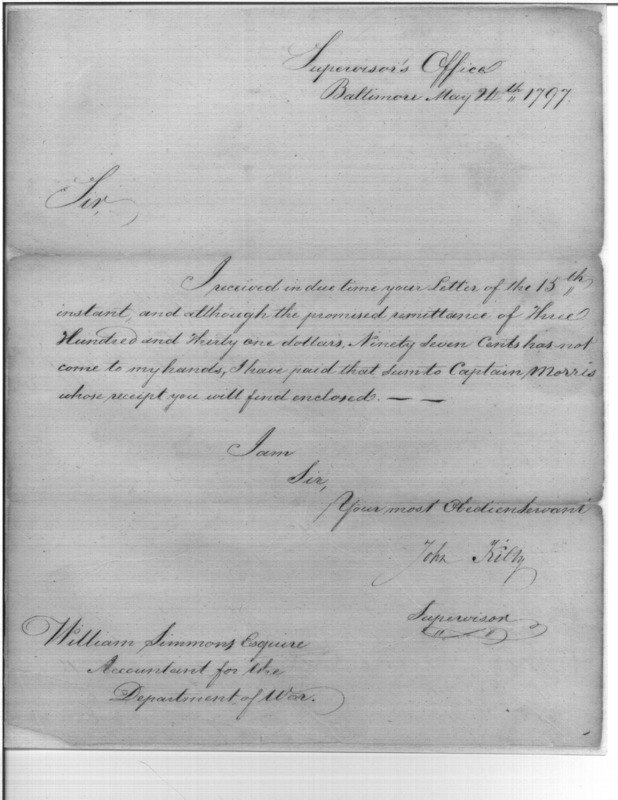 Supervisor's Office
Baltimore May 24th 1797.
Sir,
I received in due time your Letter of the 15th
instant, and although the promised remittance of Three
Hundred and Thirty one dollars. Ninety Seven Cents has not
come to my hands, I have paid that Sum to Captain Morris
whose receipt you will find enclosed. — —
I am
Sir,
Your most Obedient Servant
John Kilty
Supervisor
William Simmons Esquire
Accountant for the
Department of War.